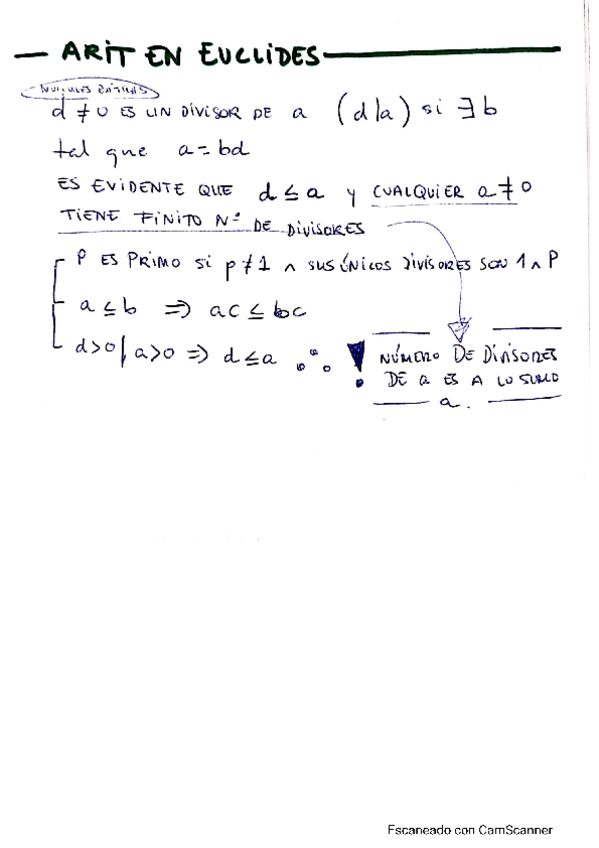 ARIT EN EUCLIDES
d ≠ 0 ES UN DIVISOR DE a (d|a) si ∃ b
tal que a = bd
ES EVIDENTE QUE d ≤ a y CUALQUIER a ≠ 0
TIENE FINITO Nº DE DIVISORES
P ES PRIMO SI p ≠ 1 ∧ SUS ÚNICOS DIVISORES SON 1 ∧ P
a ≤ b ⇒ ac ≤ bc
d>0 | a>0 ⇒ d ≤ a ∴ !
NÚMERO DE DIVISORES
DE a ES A LO SUMO
a.
Escaneado con CamScanner